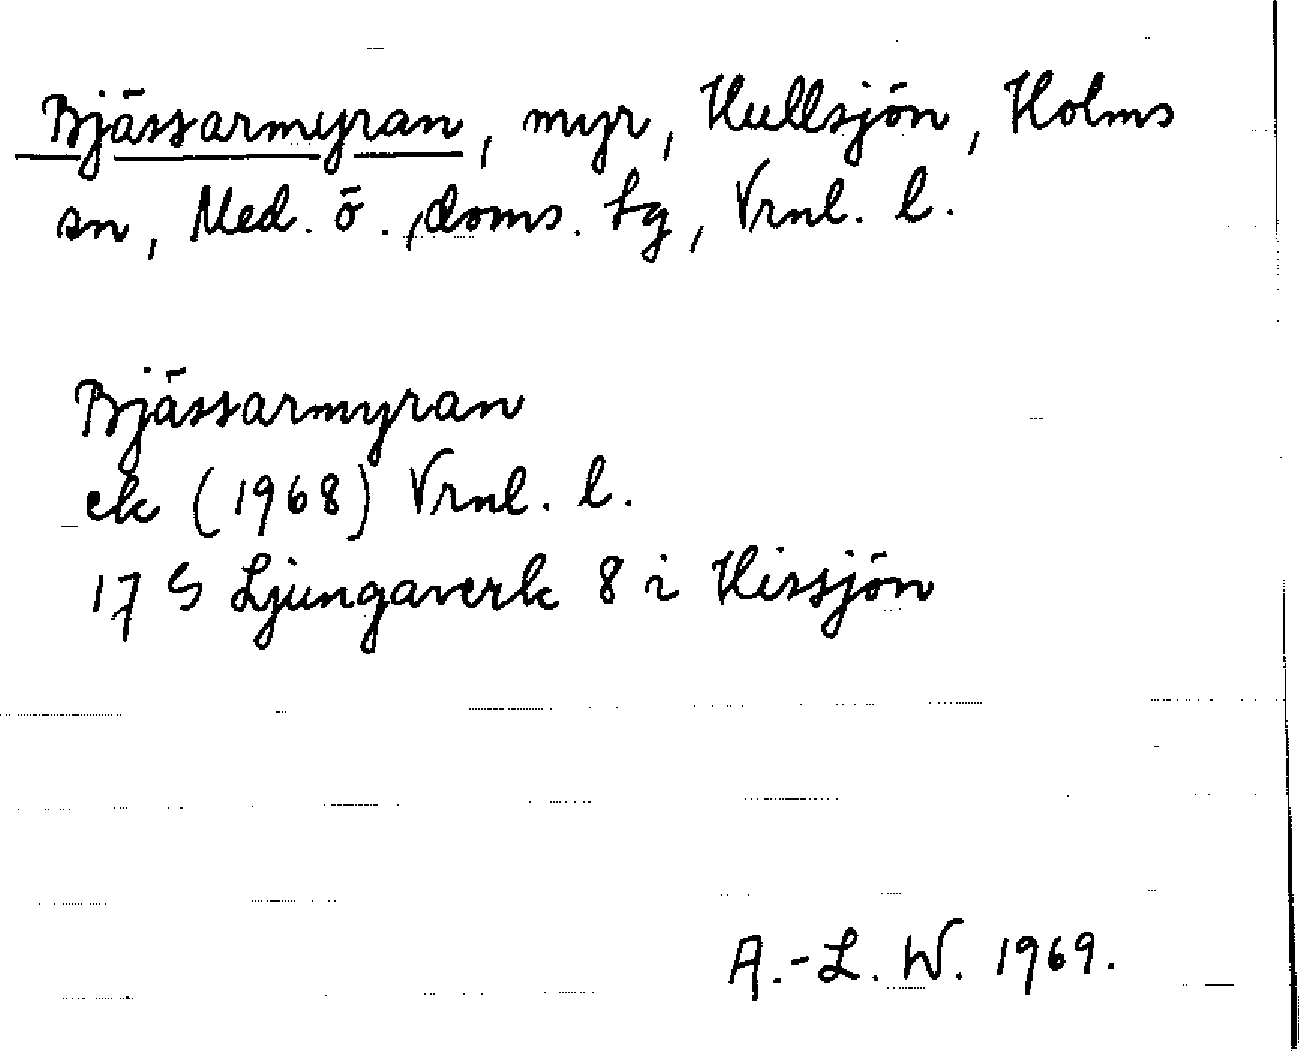 Bjässarmyran, myr, Hullsjön, Holms
sn, Med. ö. doms. tg, Vrnl. l.
Bjässarmyran
ek (1968) Vrnl. l.
17 S Ljungaverk 8 i Hissjön
A.-L. W. 1969.